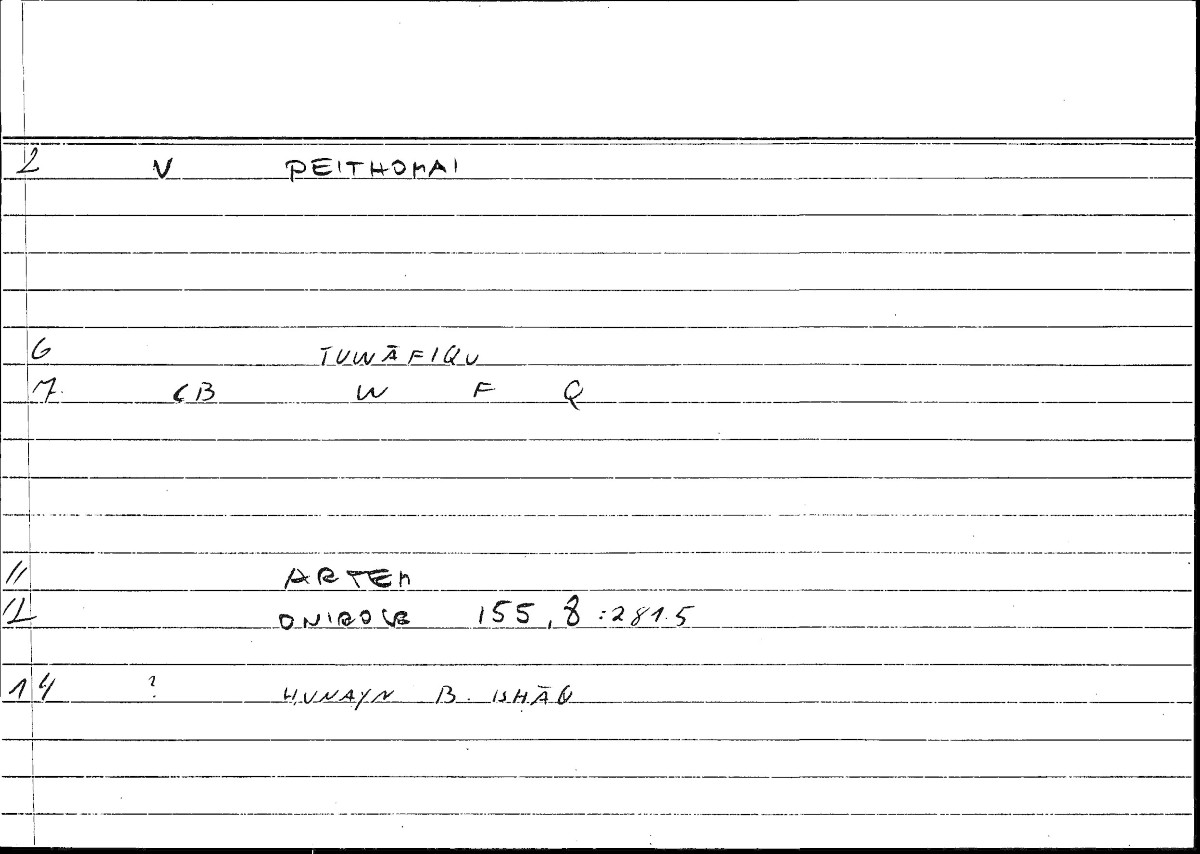 2 V PEITHOMAI
6 TUWĀFIQU
7 CB W F Q
11 ARTEM
12 ONIROCR 155,8:281.5
14 ? HUNAYN B. ISHĀQ